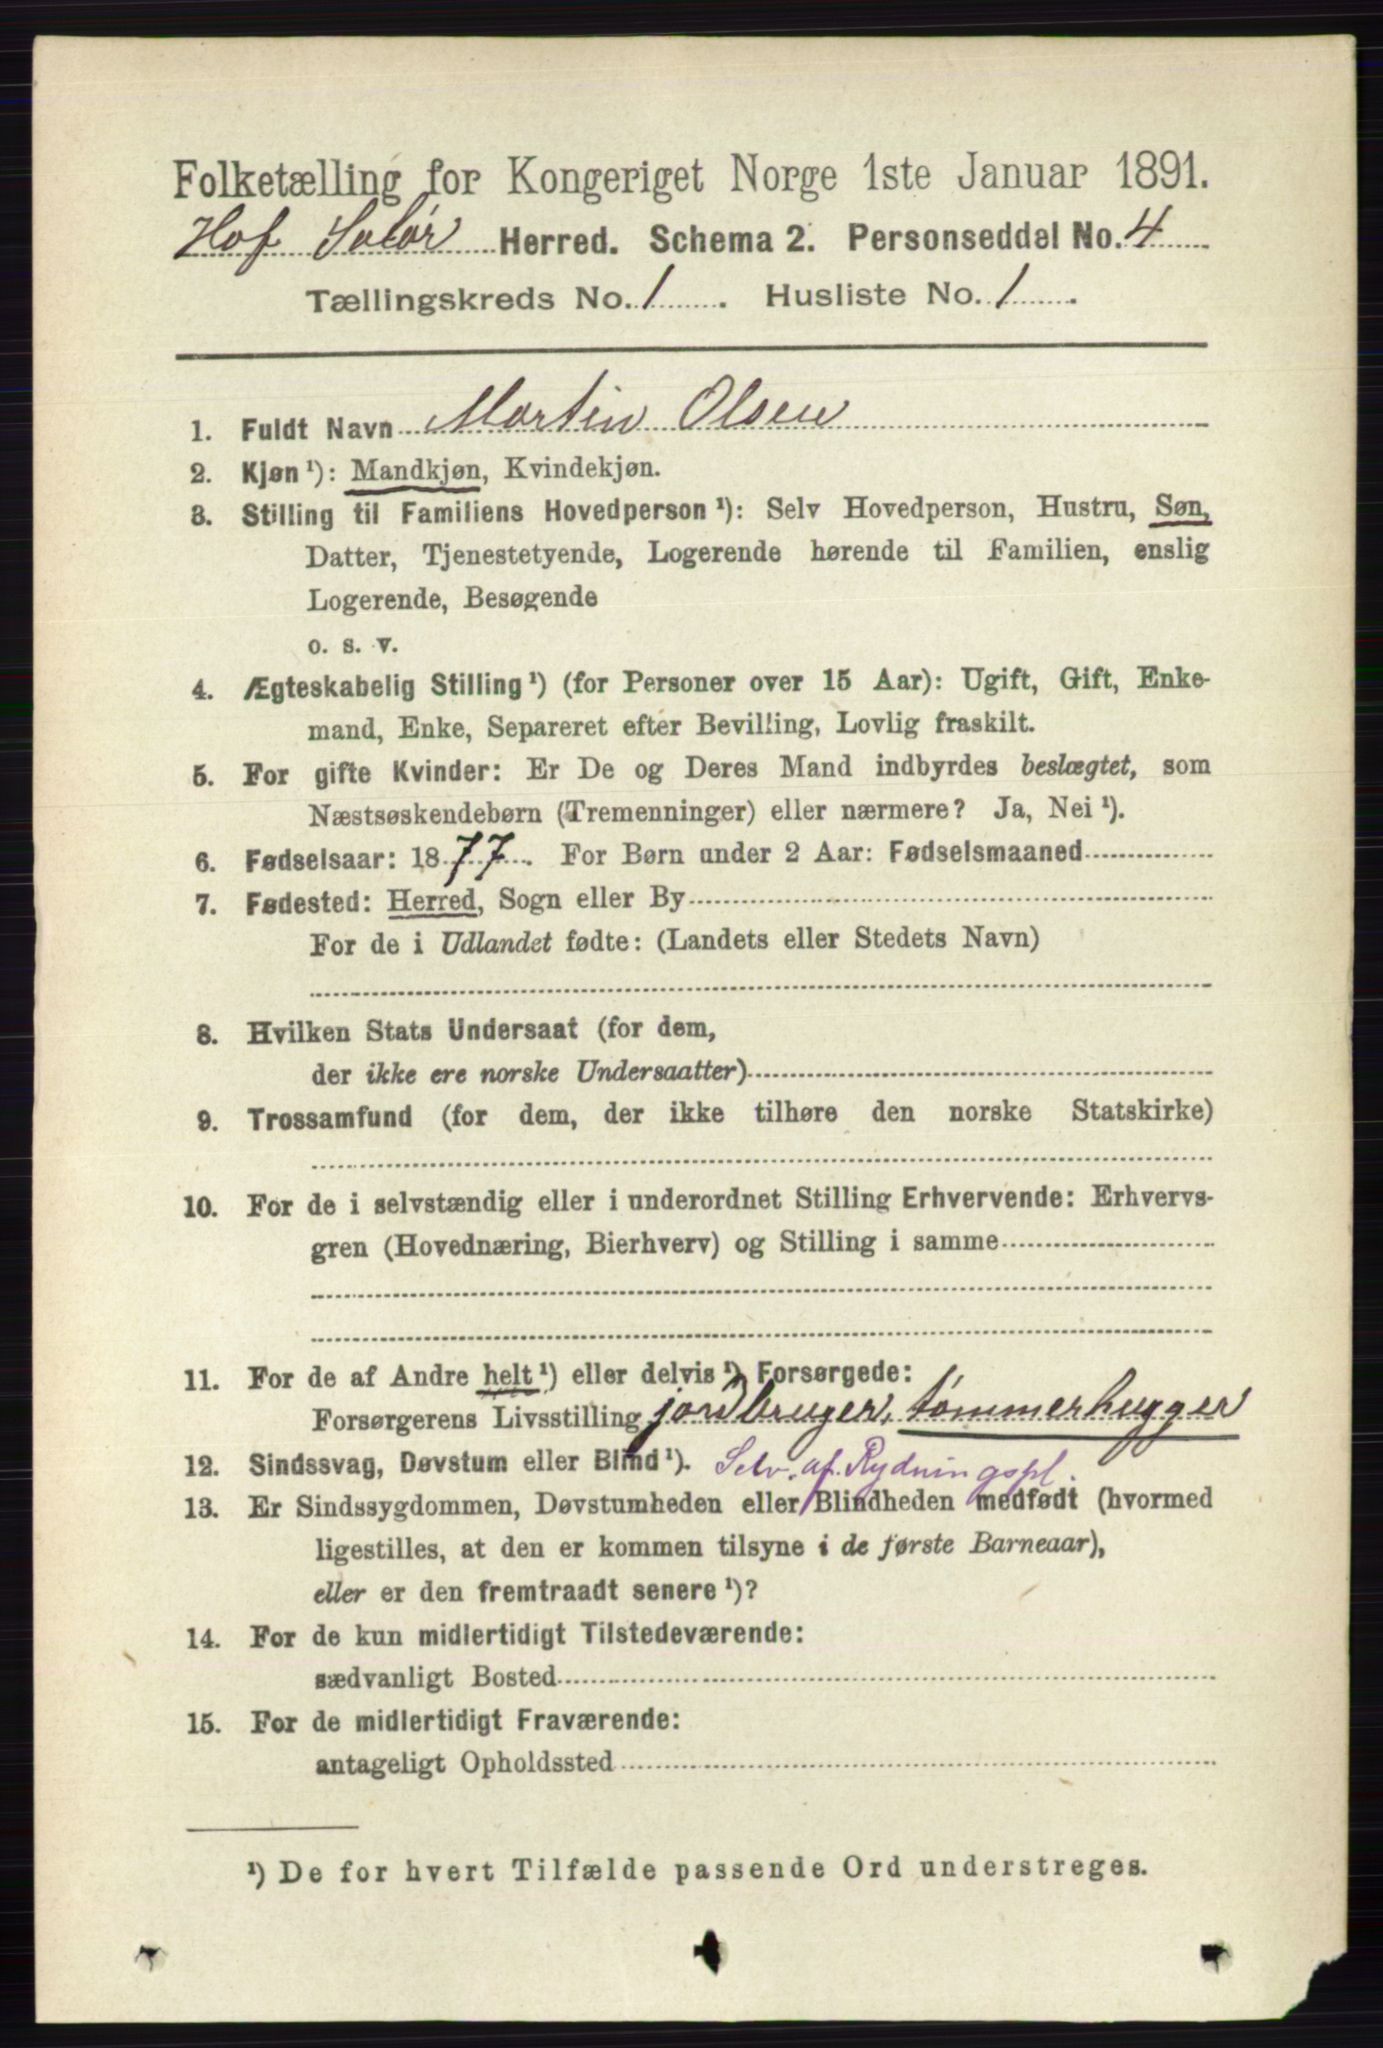 Folketælling for Kongeriget Norge 1ste Januar 1891.
Hof Solør Herred. Schema 2. Personseddel No. 4
Tællingskreds No. 1. Husliste No. 1.
1. Fuldt Navn Martin Olsen
2. Kjøn ¹): Mandkjøn, Kvindekjøn.
3. Stilling til Familiens Hovedperson ¹): Selv Hovedperson, Hustru, Søn,
Datter, Tjenestetyende, Logerende hørende til Familien, enslig
Logerende, Besøgende
o. s. v.
4. Ægteskabelig Stilling ¹) (for Personer over 15 Aar): Ugift, Gift, Enke-
mand, Enke, Separeret efter Bevilling, Lovlig fraskilt.
5. For gifte Kvinder: Er De og Deres Mand indbyrdes beslægtet, som
Næstsøskendebørn (Tremenninger) eller nærmere? Ja, Nei ¹).
6. Fødselsaar: 1877. For Børn under 2 Aar: Fødselsmaaned
7. Fødested: Herred, Sogn eller By
For de i Udlandet fødte: (Landets eller Stedets Navn)
8. Hvilken Stats Undersaat (for dem,
der ikke ere norske Undersaatter)
9. Trossamfund (for dem, der ikke tilhøre den norske Statskirke)
10. For de i selvstændig eller i underordnet Stilling Erhvervende: Erhvervs-
gren (Hovednæring, Bierhverv) og Stilling i samme
11. For de af Andre helt ¹) eller delvis ¹) Forsørgede:
Forsørgerens Livsstilling jordbruger, tømmerhugger
12. Sindssvag, Døvstum eller Blind ¹). Selv. af Rydningspl.
13. Er Sindssygdommen, Døvstumheden eller Blindheden medfødt (hvormed
ligestilles, at den er kommen tilsyne i de første Barneaar),
eller er den fremtraadt senere ¹)?
14. For de kun midlertidigt Tilstedeværende:
sædvanligt Bosted
15. For de midlertidigt Fraværende:
antageligt Opholdssted
¹) De for hvert Tilfælde passende Ord understreges.